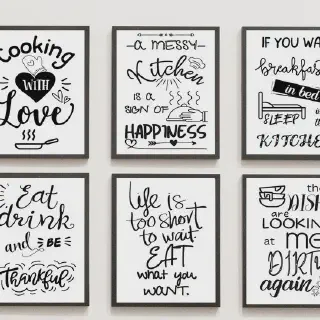 Cooking
WITH
Love
A MESSY
Kitchen
IS A
SIGN OF
HAPPINESS
IF YOU WA
breakfas
in bed
SLEEP
KITCHE
Eat
drink
and BE
Thankful
life is
too short
to wait.
EAT
what you
WANT.
the
DISH
are
LOOKIN
at me
DIRT
again